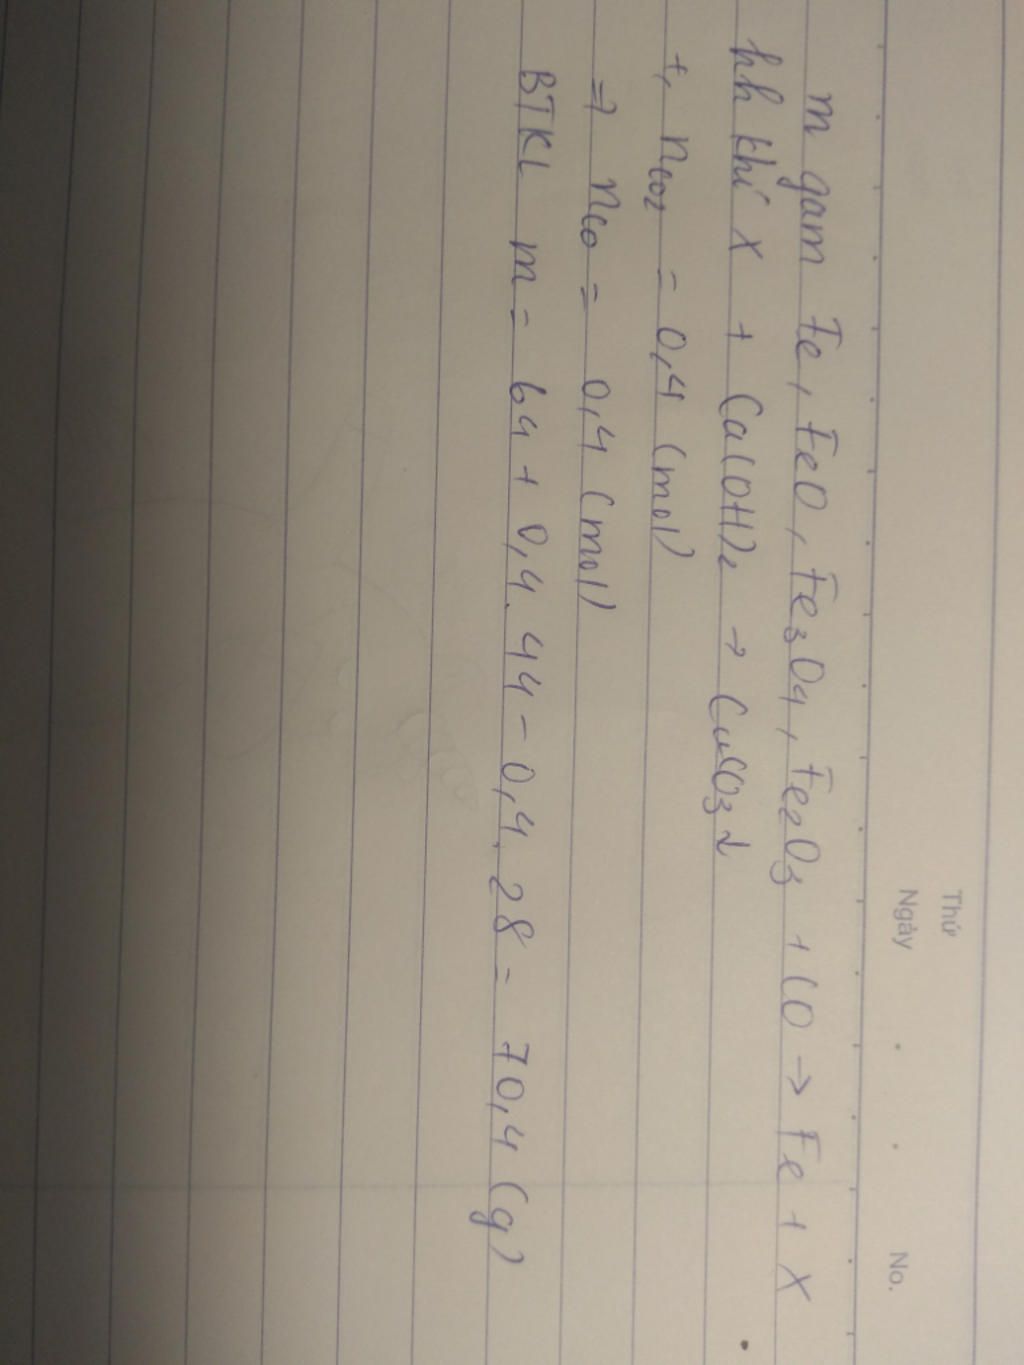 Thứ
Ngày No.
m gam Fe, FeO, Fe₃O₄, Fe₂O₃ + CO → Fe + X
hh khí X + Ca(OH)₂ → CaCO₃↓
+, nCO₂ = 0,4 (mol)
⇒ nCO = 0,4 (mol)
BTKL m = 64 + 0,4.44 - 0,4.28 = 70,4 (g)